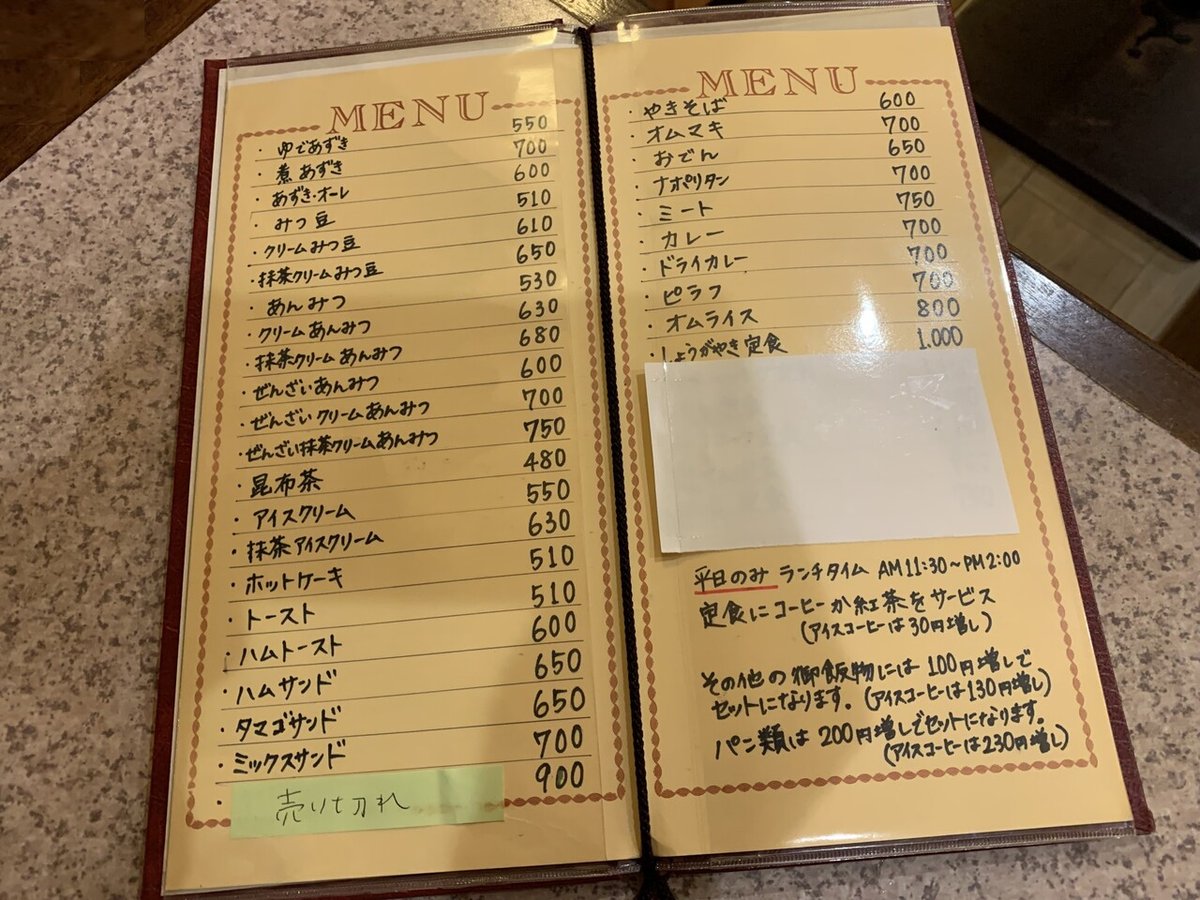 MENU
・ゆであずき 550
・煮あずき 700
・あずき・オーレ 600
・みつ豆 510
・クリームみつ豆 610
・抹茶クリームみつ豆 650
・あんみつ 530
・クリームあんみつ 630
・抹茶クリームあんみつ 680
・ぜんざいあんみつ 600
・ぜんざいクリームあんみつ 700
・ぜんざい抹茶クリームあんみつ 750
・昆布茶 480
・アイスクリーム 550
・抹茶アイスクリーム 630
・ホットケーキ 510
・トースト 510
・ハムトースト 600
・ハムサンド 650
・タマゴサンド 650
・ミックスサンド 700
・売り切れ 900
MENU
・やきそば 600
・オムマキ 700
・おでん 650
・ナポリタン 700
・ミート 750
・カレー 700
・ドライカレー 700
・ピラフ 700
・オムライス 800
・しょうがやき定食 1,000
平日のみ ランチタイム AM11:30〜PM2:00
定食にコーヒーか紅茶をサービス
(アイスコーヒーは30円増し)
その他の御飯物には100円増しで
セットになります。(アイスコーヒーは130円増し)
パン類は200円増しでセットになります。
(アイスコーヒーは230円増し)